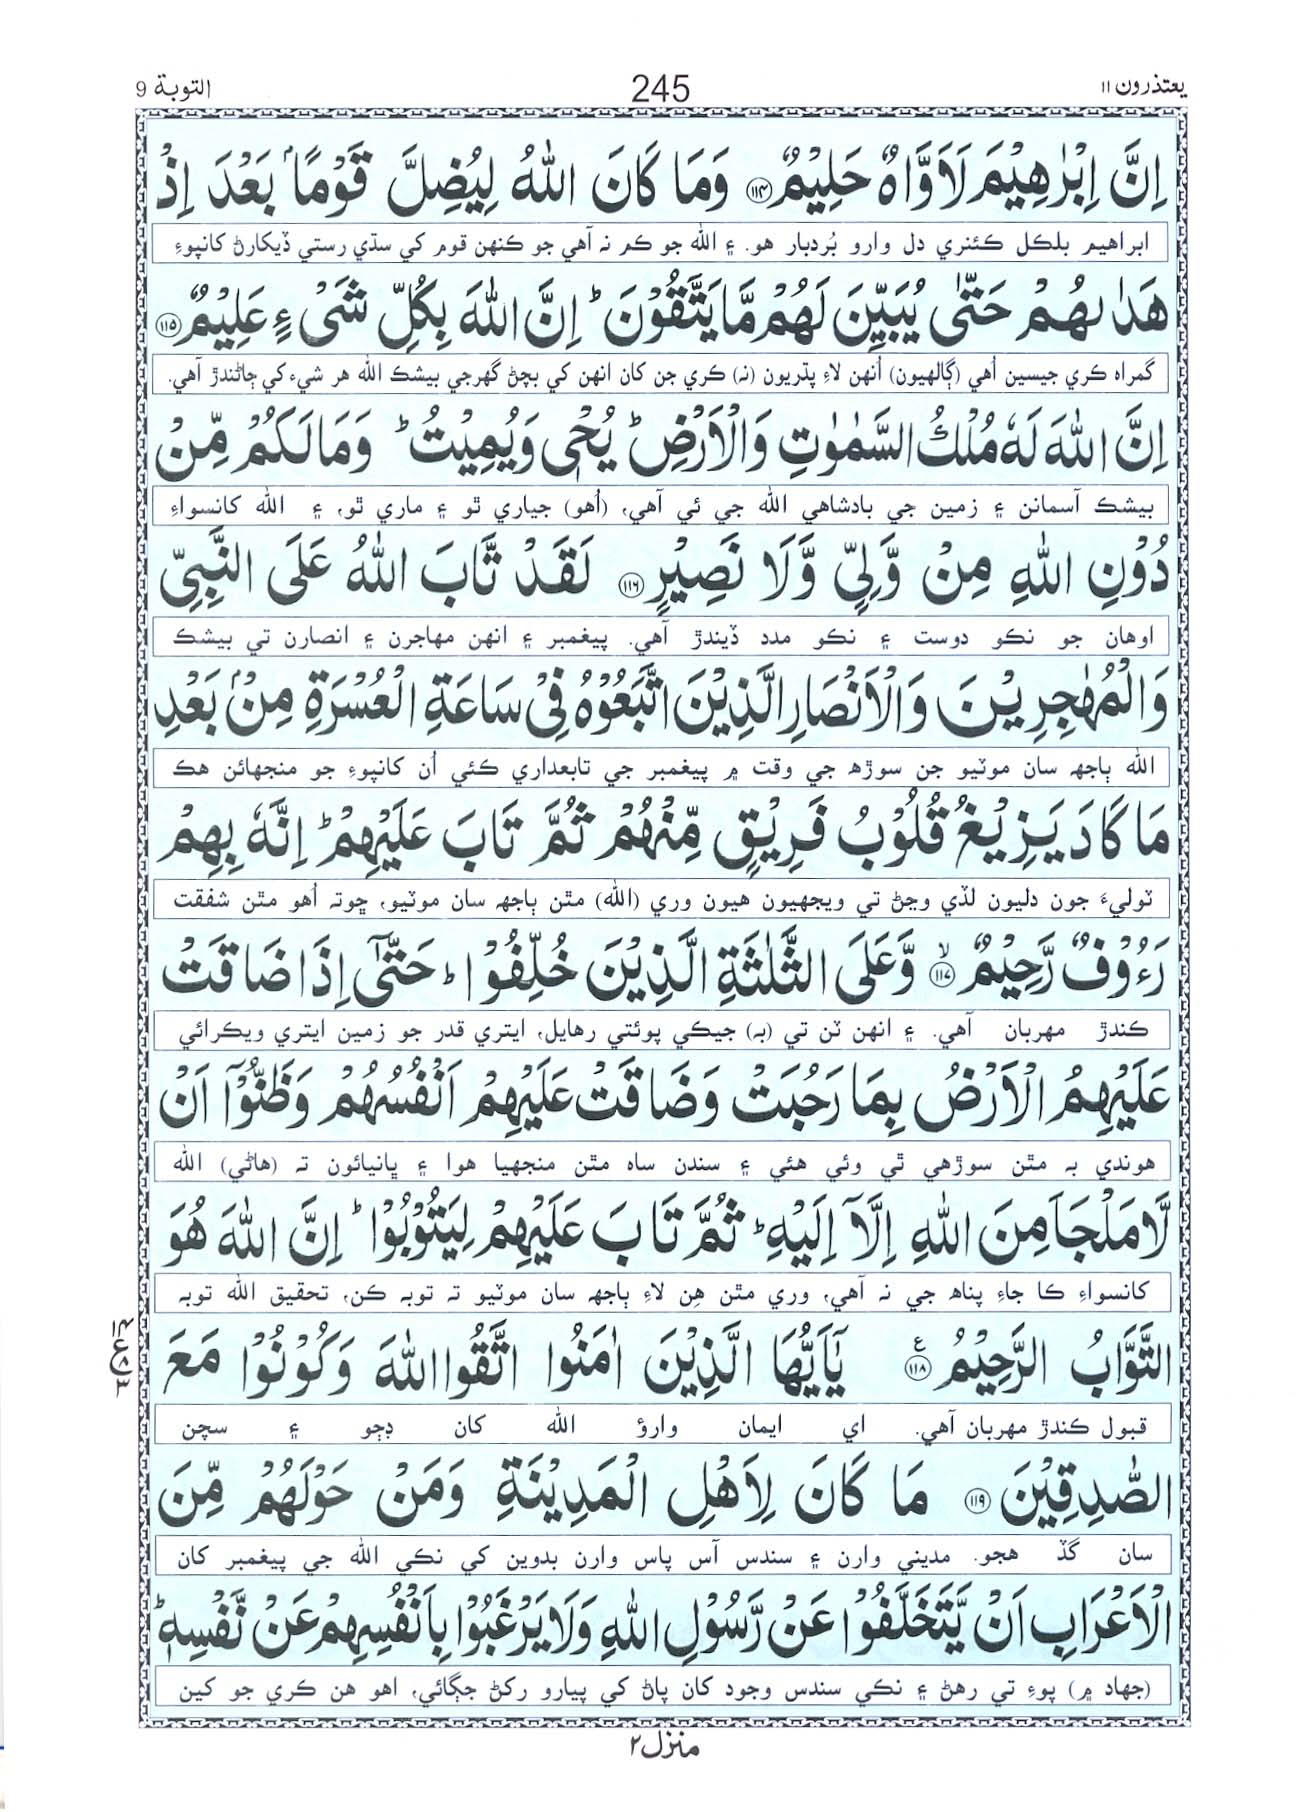 يعتذرون ١١
245
التوبة 9
اِنَّ اِبْرٰهِيْمَ لَاَوَّاهٌ حَلِيْمٌ ﴿١١٤﴾ وَمَا كَانَ اللّٰهُ لِيُضِلَّ قَوْمًۢا بَعْدَ اِذْ
ابراهيم بلڪل ڪئنري دل وارو بُردبار هو. ۽ الله جو ڪم نہ آهي جو ڪنهن قوم کي سڌي رستي ڏيکارڻ کانپوءِ
هَدٰىهُمْ حَتّٰى يُبَيِّنَ لَهُمْ مَّا يَتَّقُوْنَ ؕ اِنَّ اللّٰهَ بِكُلِّ شَىْءٍ عَلِيْمٌ ﴿١١٥﴾
گمراه ڪري جيسين اُهي (ڳالهيون) اُنهن لاءِ پڌريون (نہ) ڪري جن کان انهن کي بچڻ گهرجي بيشڪ الله هر شيءِ کي ڄاڻندڙ آهي.
اِنَّ اللّٰهَ لَهٗ مُلْكُ السَّمٰوٰتِ وَالْاَرْضِ ؕ يُحْىٖ وَيُمِيْتُ ؕ وَمَا لَكُمْ مِّنْ
بيشڪ آسمانن ۽ زمين جي بادشاهي الله جي ئي آهي، (اُهو) جياري ٿو ۽ ماري ٿو، ۽ الله کانسواءِ
دُوْنِ اللّٰهِ مِنْ وَّلِىٍّ وَّلَا نَصِيْرٍ ﴿١١٦﴾ لَقَدْ تَّابَ اللّٰهُ عَلَى النَّبِىِّ
اوهان جو نڪو دوست ۽ نڪو مدد ڏيندڙ آهي. پيغمبر ۽ انهن مهاجرن ۽ انصارن تي بيشڪ
وَالْمُهٰجِرِيْنَ وَالْاَنْصَارِ الَّذِيْنَ اتَّبَعُوْهُ فِىْ سَاعَةِ الْعُسْرَةِ مِنْۢ بَعْدِ
الله ٻاجهہ سان موٽيو جن سوڙهہ جي وقت ۾ پيغمبر جي تابعداري ڪئي اُن کانپوءِ جو منجهائن هڪ
مَا كَادَ يَزِيْغُ قُلُوْبُ فَرِيْقٍ مِّنْهُمْ ثُمَّ تَابَ عَلَيْهِمْ ؕ اِنَّهٗ بِهِمْ
ٽوليءَ جون دليون لڏي وڃڻ تي ويجهيون هيون وري (الله) مٿن ٻاجهہ سان موٽيو، ڇوتہ اُهو مٿن شفقت
رَءُوْفٌ رَّحِيْمٌ ﴿١١٧﴾ۙ وَّعَلَى الثَّلٰثَةِ الَّذِيْنَ خُلِّفُوْا ؕ حَتّٰٓى اِذَا ضَاقَتْ
ڪندڙ مهربان آهي. ۽ انهن ٽن تي (بہ) جيڪي پوئتي رهايل، ايتري قدر جو زمين ايتري ويڪرائي
عَلَيْهِمُ الْاَرْضُ بِمَا رَحُبَتْ وَضَاقَتْ عَلَيْهِمْ اَنْفُسُهُمْ وَظَنُّوْٓا اَنْ
هوندي بہ مٿن سوڙهي ٿي وئي هئي ۽ سندن ساه مٿن منجهيا هوا ۽ ڀانيائون تہ (هاڻي) الله
لَّا مَلْجَاَ مِنَ اللّٰهِ اِلَّآ اِلَيْهِ ؕ ثُمَّ تَابَ عَلَيْهِمْ لِيَتُوْبُوْا ؕ اِنَّ اللّٰهَ هُوَ
کانسواءِ ڪا جاءِ پناه جي نہ آهي، وري مٿن هِن لاءِ ٻاجهہ سان موٽيو تہ توبہ ڪن، تحقيق الله توبہ
التَّوَّابُ الرَّحِيْمُ ﴿١١٨﴾ ع يٰٓاَيُّهَا الَّذِيْنَ اٰمَنُوا اتَّقُوا اللّٰهَ وَكُوْنُوْا مَعَ
قبول ڪندڙ مهربان آهي. اي ايمان وارؤ الله کان ڊڄو ۽ سچن
الصّٰدِقِيْنَ ﴿١١٩﴾ مَا كَانَ لِاَهْلِ الْمَدِيْنَةِ وَمَنْ حَوْلَهُمْ مِّنَ
سان گڏ هجو. مديني وارن ۽ سندس آس پاس وارن بدوين کي نڪي الله جي پيغمبر کان
الْاَعْرَابِ اَنْ يَّتَخَلَّفُوْا عَنْ رَّسُوْلِ اللّٰهِ وَلَا يَرْغَبُوْا بِاَنْفُسِهِمْ عَنْ نَّفْسِهٖ ؕ
(جهاد ۾) پوءِ تي رهڻ ۽ نڪي سندس وجود کان پاڻ کي پيارو رکڻ جڳائي، اهو هن ڪري جو کين
منزل ٢